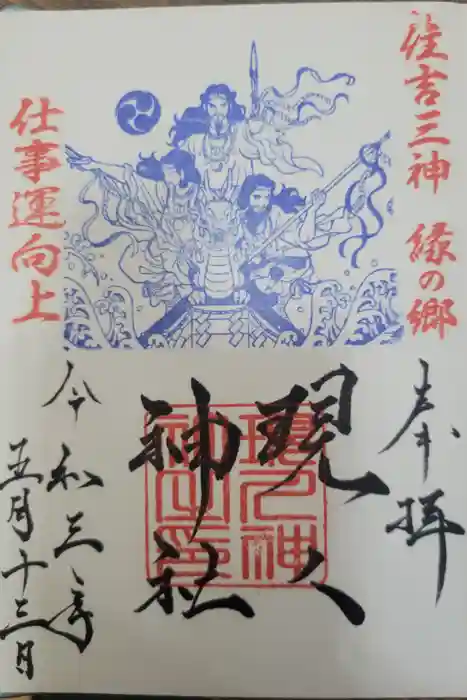 住吉三神 縁の郷
仕事運向上
奉拝
現人
神社
令和三年
五月十三日